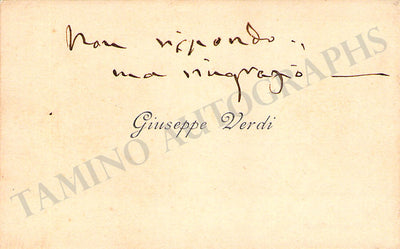 Non rispondo..
ma ringrazio —
Giuseppe Verdi
TAMINO AUTOGRAPHS